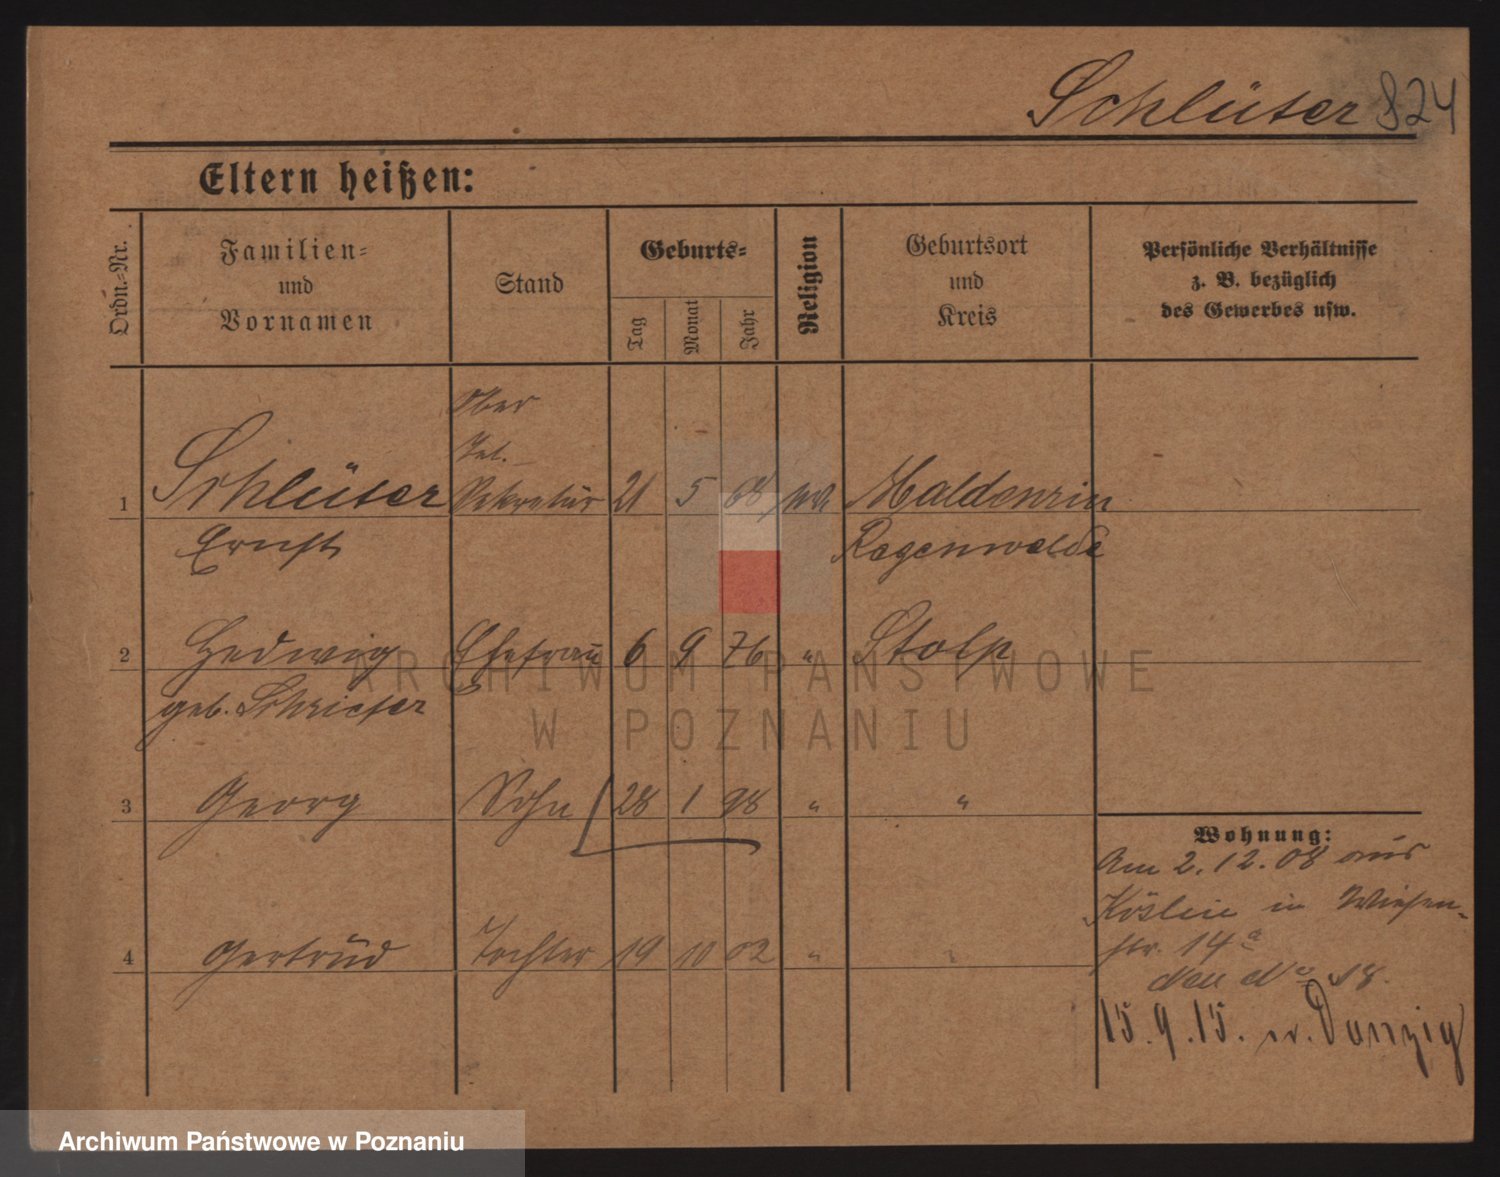 Schlüter 824
Eltern heißen:
Ordn.-Nr.
Familien-
und
Vornamen
Stand
Geburts-
Tag
Monat
Jahr
Religion
Geburtsort
und
Kreis
Persönliche Verhältnisse
z. B. bezüglich
des Gewerbes usw.
Ober
Tel.
1 Schlüter Sekretär 21 5 68 Maldewin
Ernst Regenwalde
2 Hedwig Ehefrau 6 9 76 " Stolp
geb. Schriefer
3 Georg Sohn 28 1 98 " "
4 Gertrud Tochter 19 10 02 " "
Wohnung:
Am 2.12.08 aus
Köslin in Wiesen-
str. 14a
neu No 18.
15.9.15. n. Danzig
ARCHIWUM PAŃSTWOWE
W POZNANIU
Archiwum Państwowe w Poznaniu